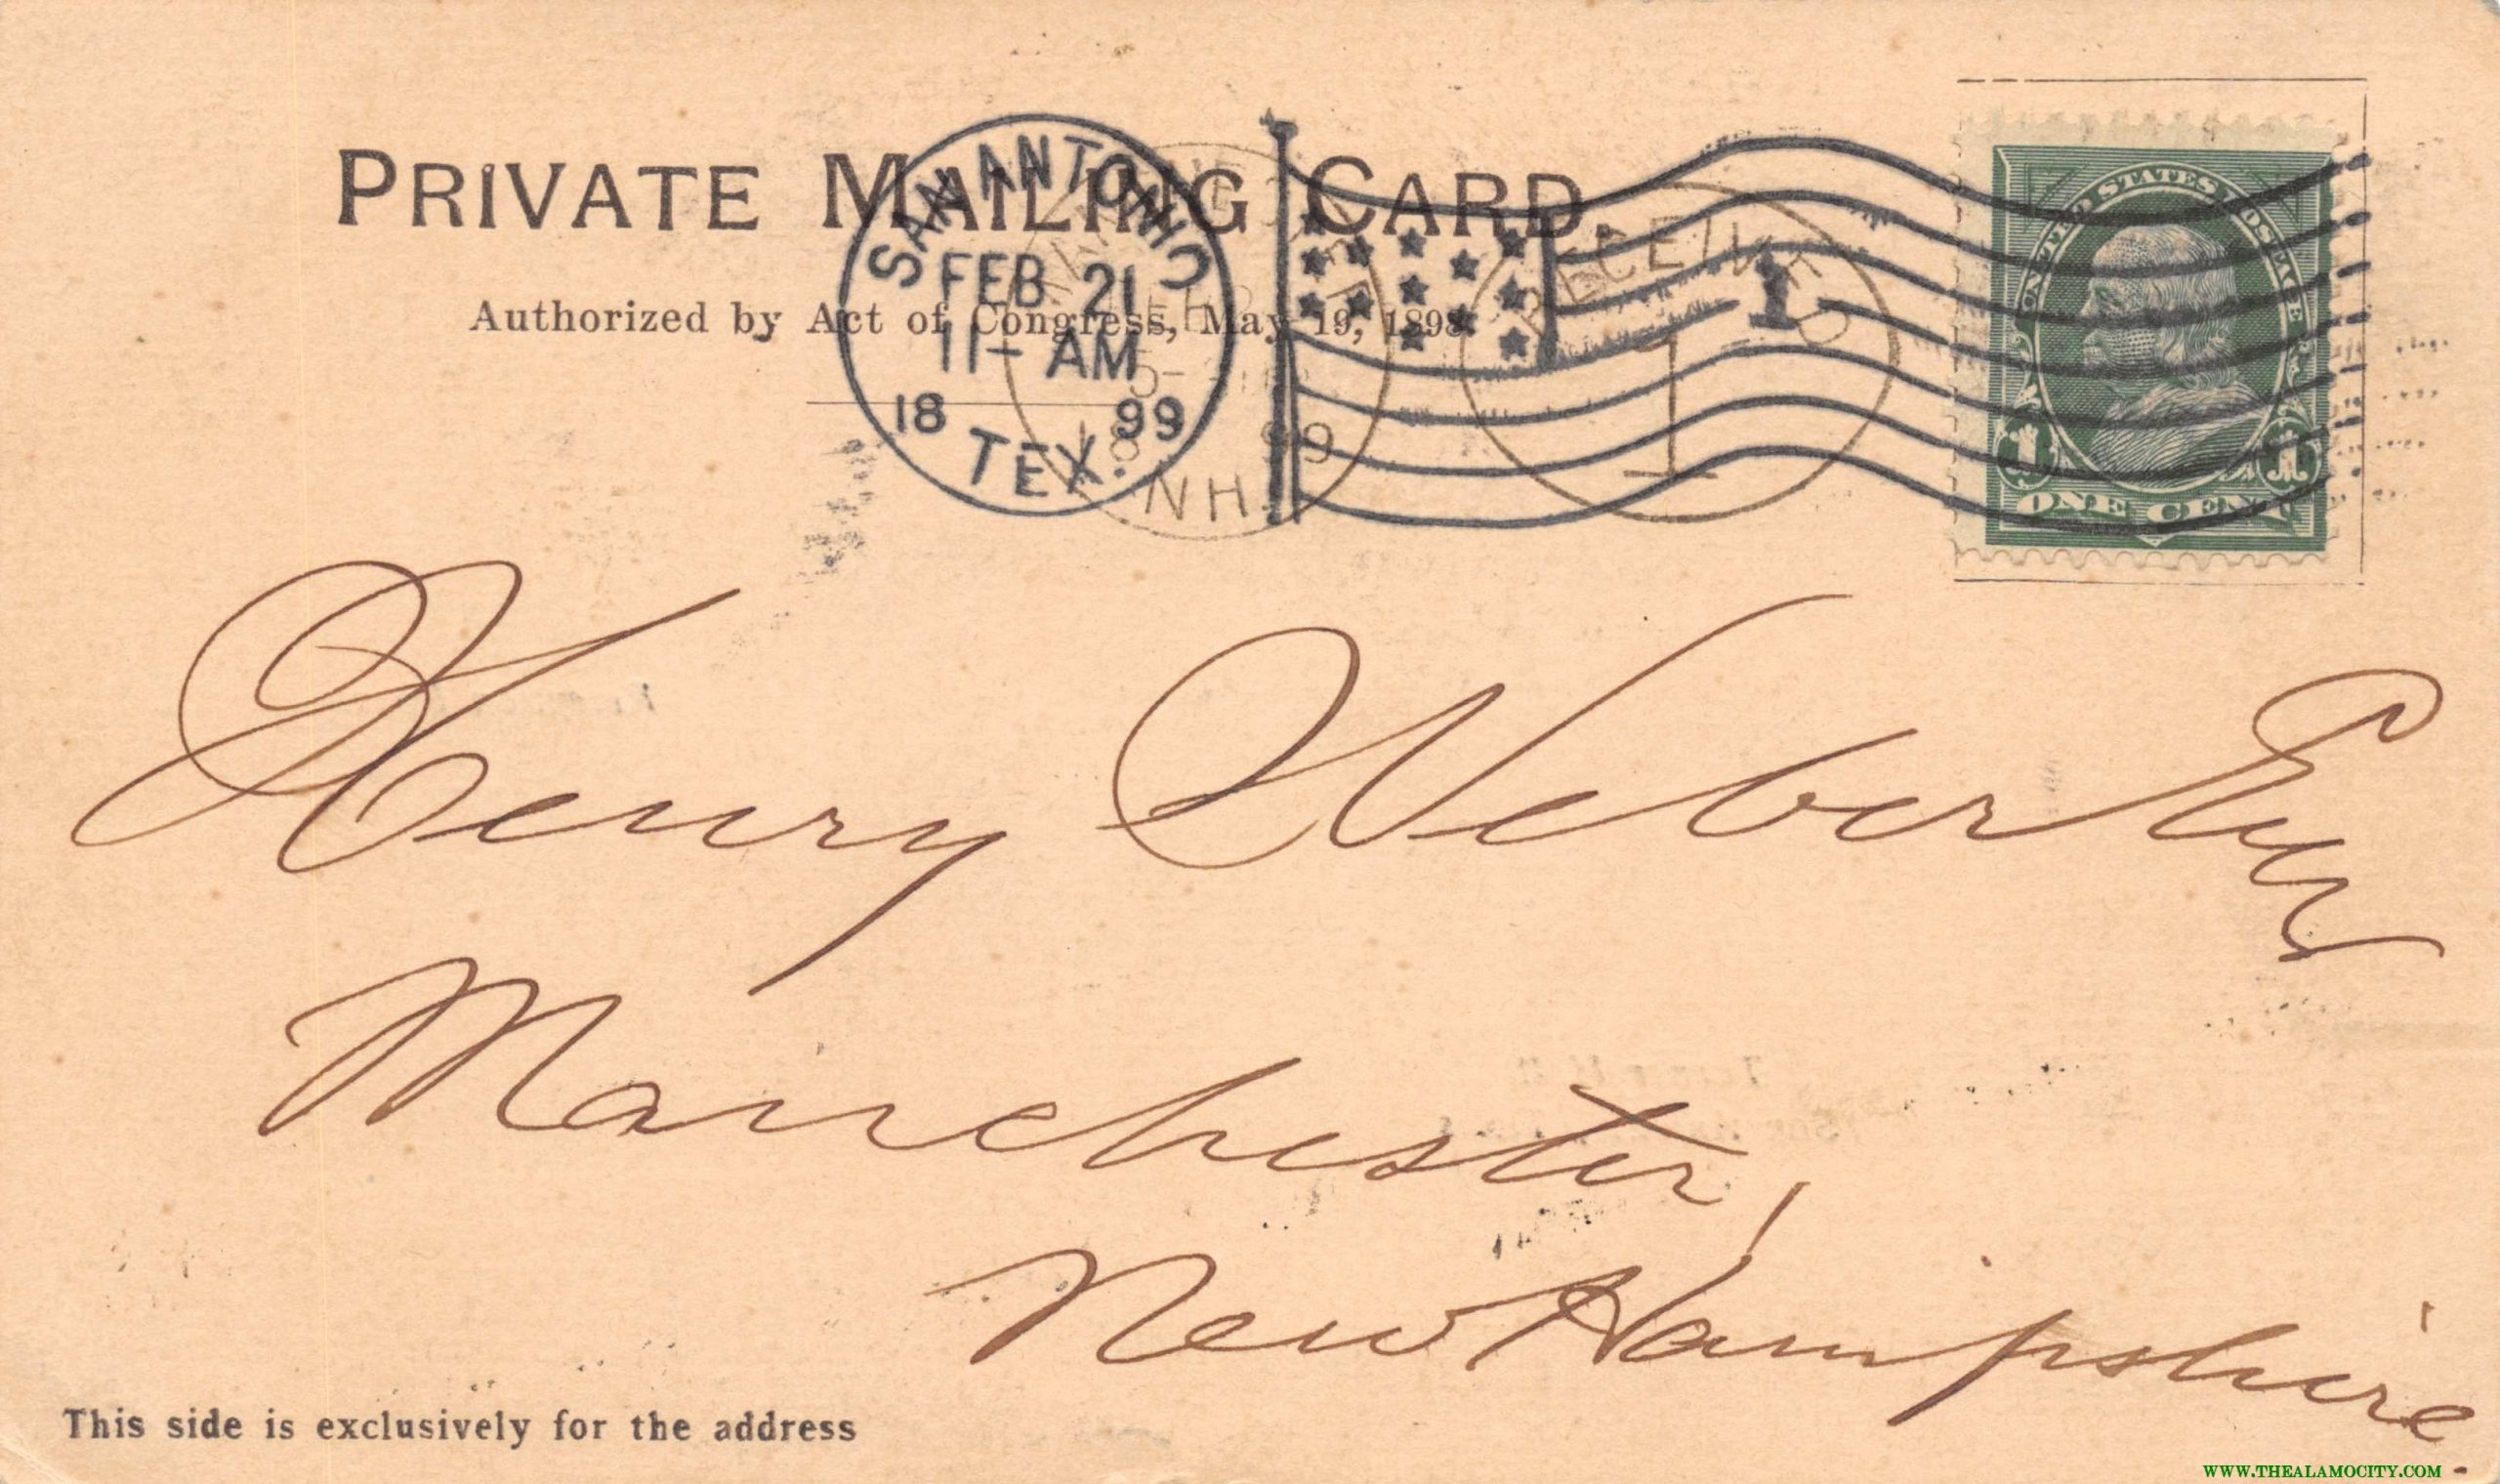 PRIVATE MAILING CARD
Authorized by Act of Congress, May 19, 1898.
SAN ANTONIO
FEB 21
11- AM
18 99
TEX.
NH.
18 99
RECEIVED
1
1
UNITED STATES POSTAGE
1 1
ONE CENT
Henry Weber
Manchester,
New Hampshire.
This side is exclusively for the address
WWW.THEALAMOCITY.COM